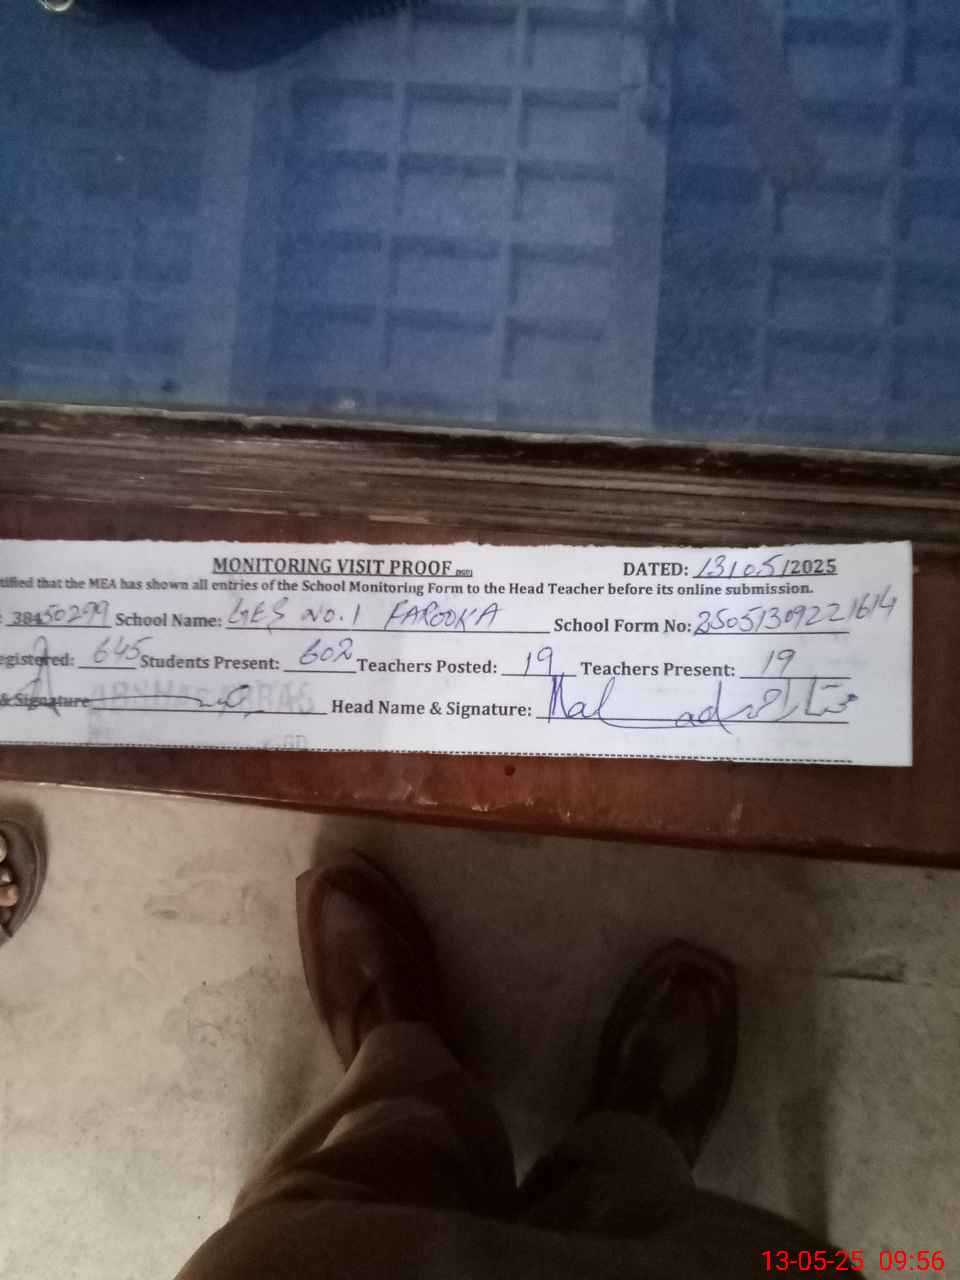 MONITORING VISIT PROOF DATED: 13/05/2025
tified that the MEA has shown all entries of the School Monitoring Form to the Head Teacher before its online submission.
: 38450299 School Name: GES NO.1 FAROOKA School Form No: 25051309221614
egistered: 645 Students Present: 602 Teachers Posted: 19 Teachers Present: 19
& Signature Head Name & Signature:
13-05-25 09:56